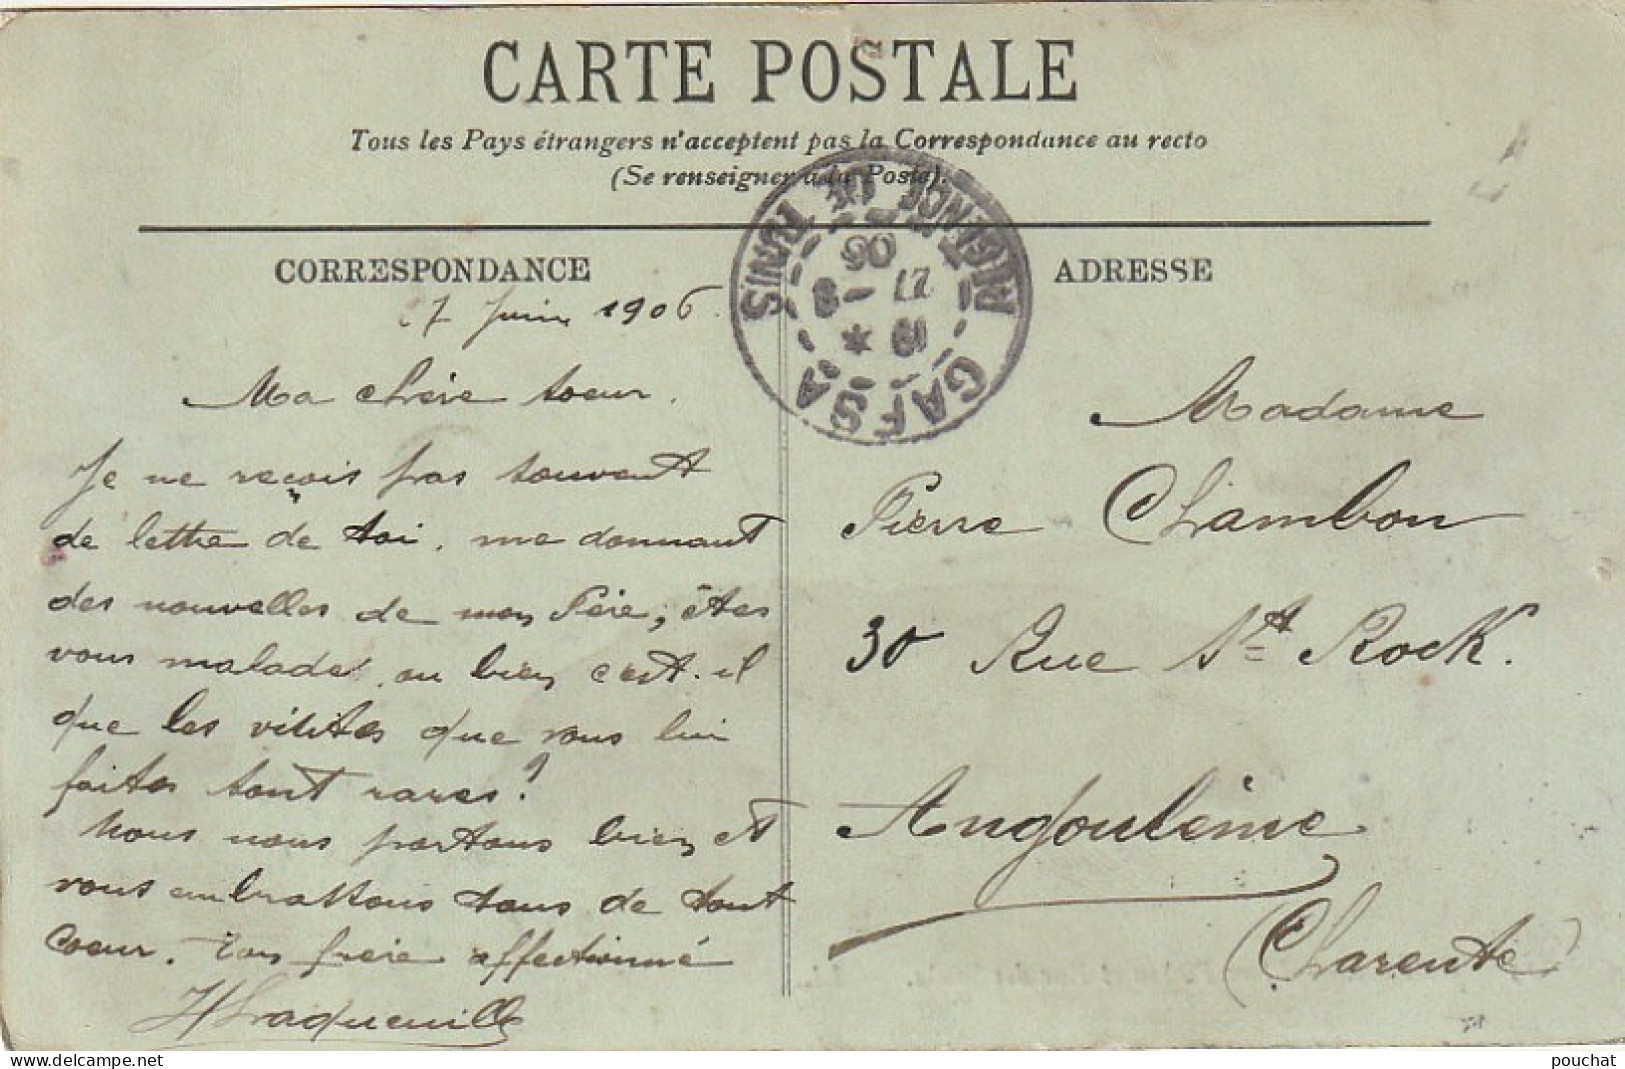 CARTE POSTALE
Tous les Pays étrangers n'acceptent pas la Correspondance au recto
(Se renseigner à la Poste).
CORRESPONDANCE
27 Juin 1906.
Ma chère soeur.
Je ne reçois pas souvent
de lettre de toi, me donnant
des nouvelles de mon Père, êtes
vous malade, ou bien c'est-il
que les visites que vous lui
faites sont rares?
Nous nous portons bien et
vous embrassons tous de tout
coeur. Ton frère affectionné
H Laqueuille
ADRESSE
RÉGENCE DE TUNIS
GAFSA
19 *
27 -6
06
Madame
Pierre Chambon
30 Rue St Rock.
Angoulême
(Charente)
www.delcampe.net
pouchat